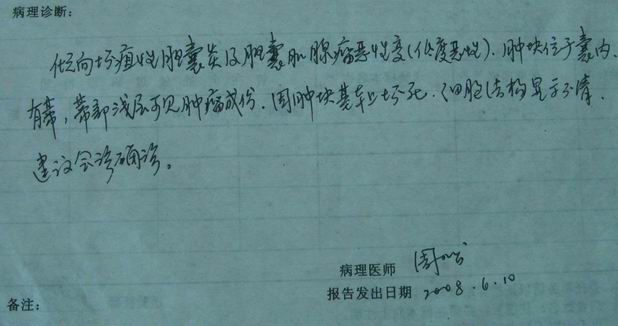 病理诊断:
倾向坏疽性胆囊炎及胆囊肌腺瘤恶性变(低度恶性).肿块位于囊内.
有蒂,蒂部浅层可见肿瘤成份.因肿块基本上坏死.细胞结构显示不清.
建议会诊确诊。
病理医师 周
报告发出日期 2008.6.10
备注: